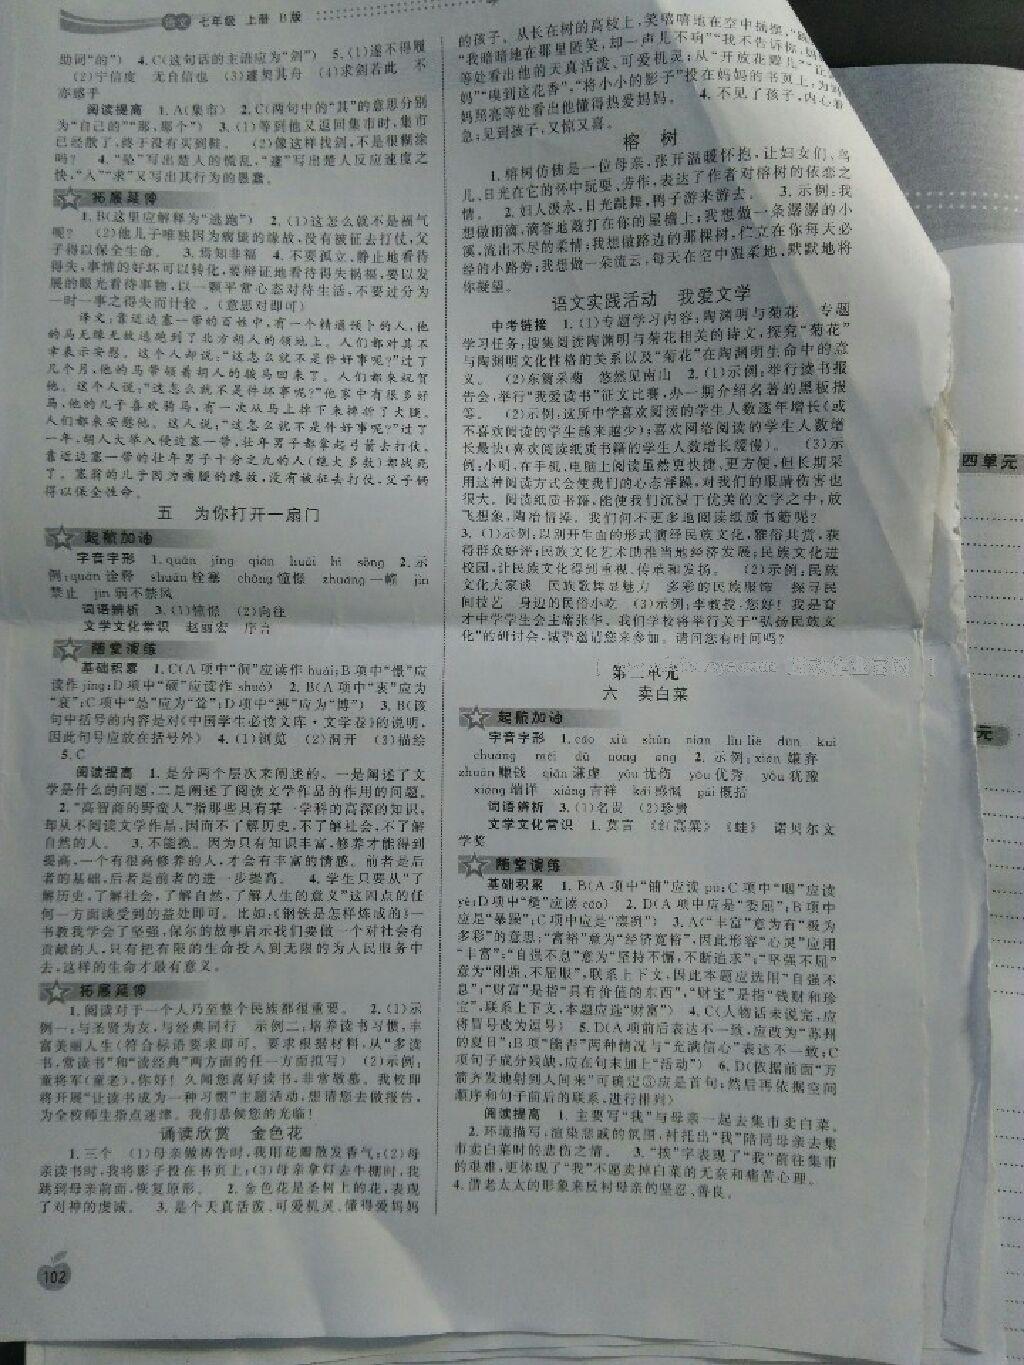 语文 七年级 上册 B版
助词“的”) 4.C(这句话的主语应为“剑”) 5.(1)遂不得履
(2)宁信度 无自信也 (3)遽契其舟 (4)求剑若此 不
亦惑乎
阅读提高 1.A(集市) 2.C(两句中的“其”的意思分别
为“自己的”“那,那个”) 3.(1)等到他又返回集市时,集市
已经散了,终于没有买到鞋。 (2)像这样找剑,不是很糊涂
吗? 4.“坠”写出楚人的慌乱,“遽”写出楚人反应速度之
快,“入”“求”又写出其行为的愚蠢。
拓展延伸
1.B(这里应解释为“逃跑”) 2.(1)这怎么就不是福气
呢? (2)他儿子唯独因为瘸腿的缘故,没有被征去打仗,父
子得以保全生命。 3.焉知非福 4.不要孤立、静止地看待
得失,事情的好坏可以转化,要辩证地看待得失祸福,要以发
展的眼光看待事物,以一颗平常心态对待生活,不要过分为
一时一事之得失而计较。(意思对即可)
译文:靠近边塞一带的百姓中,有一个精通预卜的人,他
的马无缘无故逃跑到了北方胡人的领地上。人们都对其不
幸表示安慰。这个人却说:“这怎么就不是件好事呢?”过了
几个月,他的马带领着胡人的骏马回来了。人们都来祝贺
他。这个人说:“这怎么就不是件坏事呢?”他家中有很多好
马,他的儿子喜欢骑马,有一次从马上掉下来摔折了大腿。
人们都来安慰他。这人说:“这怎么就不是件好事呢?”过了
一年,胡人大举入侵边塞一带,壮年男子都拿起弓箭去打仗。
靠近边塞一带的壮年男子十分之九的人(绝大多数)都战死
了。塞翁的儿子因为瘸腿的缘故,没有被征去打仗,父子俩
得以保全性命。
五 为你打开一扇门
起航加油
字音字形 1.quán jǐng qián huái bì sǒng 2.示
例:quán诠释 shuān栓塞 chōng憧憬 zhuàng一幢 jìn
禁止 jīn弱不禁风
词语辨析 3.(1)憧憬 (2)向往
文学文化常识 赵丽宏 序言
随堂演练
基础积累 1.C(A项中“徊”应读作huái;B项中“憬”应
读作jǐng;D项中“硕”应读作shuò) 2.B(A项中“衷”应为
“哀”;C项中“怂”应为“耸”;D项中“搏”应为“博”) 3.B(该
句中括号的内容是对《中国学生必读文库·文学卷》的说明,
因此句号应放在括号外) 4.(1)浏览 (2)洞开 (3)描绘
5.C
阅读提高 1.是分两个层次来阐述的。一是阐述了文
学是什么的问题,二是阐述了阅读文学作品的作用的问题。
2.“高智商的野蛮人”指那些具有某一学科的高深的知识,
却从不阅读文学作品,因而不了解历史,不了解社会,不了解
自然的人。 3.不能换。因为只有知识丰富,修养才能得到
提高,一个有很高修养的人,才会有丰富的情感。前者是后
者的基础,后者是前者的进一步提高。 4.学生只要从“了
解历史,了解社会,了解自然,了解人生的意义”这四点的任
何一方面谈受到的益处即可。比如:《钢铁是怎样炼成的》一
书教我学会了坚强,保尔的故事启示我们要做一个对社会有
贡献的人,只有把有限的生命投入到无限的为人民服务中
去,这样的生命才最有意义。
拓展延伸
1.阅读对于一个人乃至整个民族都很重要。 2.(1)示
例一:与圣贤为友,与经典同行 示例二:培养读书习惯,丰
富美丽人生(符合标语要求即可。要求根据材料,从“多读
书,常读书”和“读经典”两方面的任一方面拟写) (2)示例:
童将军(童老),你好!久闻您喜好读书,非常敬慕。我校即
将开展“让读书成为一种习惯”主题活动,想请您去做报告,
为全校师生指点迷津。我们恭候您的光临!
诵读欣赏 金色花
1.三个 (1)母亲做祷告时,我用花瓣散发香气;(2)母
亲读书时,我将影子投在书页上;(3)母亲拿灯去牛棚时,我
跳到母亲前面,恢复原形。 2.金色花是圣树上的花,表现
了对神的虔诚。 3.是个天真活泼、可爱机灵、懂得爱妈妈
102
的孩子。从长在树的高枝上,笑嘻嘻地在空中摇摆,
“我暗暗地在那里匿笑,却一声儿不响”“我不告诉你,
等处看出他的天真活泼、可爱机灵;从“开放花瓣儿”
妈”“嗅到这花香”,“将小小的影子”投在妈妈的书页上,为
妈照亮等处看出他懂得热爱妈妈。 4.不见了孩子,内心着
急;见到孩子,又惊又喜。
榕 树
1.榕树仿佛是一位母亲,张开温暖怀抱,让妇女们、鸟
儿、日光在它的怀中玩耍、劳作,表达了作者对榕树的依恋之
情。 2.妇人汲水,日光跳舞,鸭子游来游去。 3.示例:我
想做雨滴,滴答地敲打在你的屋墙上;我想做一条潺潺的小
溪,流出不尽的柔情;我想做路边的那棵树,伫立在你每天必
经的小路旁;我想做一朵流云,每天在空中温柔地、默默地将
你凝望。
语文实践活动 我爱文学
中考链接 1.(1)专题学习内容:陶渊明与菊花 专题
学习任务:搜集阅读陶渊明与菊花相关的诗文,探究“菊花”
与陶渊明文化性格的关系以及“菊花”在陶渊明生命中的意
义。 (2)东篱采菊 悠然见南山 2.(1)示例:举行读书报
告会,举行“我爱读书”征文比赛,办一期介绍名著的黑板报
等。 (2)示例:这所中学喜欢阅读的学生人数逐年增长(或
不喜欢阅读的学生越来越少);喜欢网络阅读的学生人数增
长最快(喜欢阅读纸质书籍的学生人数增长缓慢)。 (3)示
例:小明,在手机、电脑上阅读虽然更快捷、更方便,但长期采
用这种阅读方式会使我们的心态浮躁,对我们的眼睛伤害也
很大。阅读纸质书籍,能使我们沉浸于优美的文字之中,放
飞想象,陶冶情操。我们何不更多地阅读纸质书籍呢?
3.(1)示例:以别开生面的形式演绎民族文化,雅俗共赏,获
得群众好评;民族文化艺术助推当地经济发展;民族文化进
校园,让民族文化得到重视、传承和发扬。 (2)示例:民族
文化大家谈 民族歌舞显魅力 多彩的民族服饰 探寻民
间技艺 身边的民俗小吃 (3)示例:李教授,您好!我是育
才中学学生会主席张华。我们学校将举行关于“弘扬民族文
化”的研讨会,诚挚邀请您来参加。请问您有时间吗?
第二单元
六 卖白菜
起航加油
字音字形
2.示例:xián嫌弃
zhuàn赚钱 qiān谦虚 yōu忧伤 yōu优秀 yóu犹豫
xiáng端详 xiáng吉祥 kǎi感慨 gài概括
词语辨析 3.(1)名贵 (2)珍贵
文学文化常识 1.莫言 《红高粱》 《蛙》 诺贝尔文
学奖
随堂演练
基础积累 1.B(A项中“铺”应读pū;C项中“咽”应读
yè;D项中“糙”应读cāo) 2.D(A项中应是“委屈”;B项中
应是“暴躁”;C项中应是“凛冽”) 3.A(“丰富”意为有“极为
多彩”的意思;“富裕”意为“经济宽裕”,因此形容“心灵”应用
“丰富”;“自强不息”意为“坚持不懈,不断追求”;“坚强不屈”
意为“刚强、不屈服”,联系上下文,因此本题应选用“自强不
息”;“财富”是指“具有价值的东西”,“财宝”是指“钱财和珍
宝”,联系上下文,本题应选“财富”) 4.C(人物话未说完,应
将冒号改为逗号) 5.D(A项前后表达不一致,应改为“苏州
的夏日”;B项“能否”两种情况与“充满信心”表达不一致;C
项句子成分残缺,应在句末加上“活动”) 6.D(依据前面“万
箭齐发地射到人间来”可确定③应是首句;然后再依据空间
顺序和句子前后的联系,进行排列)
阅读提高 1.主要写“我”与母亲一起去集市卖白菜。
2.环境描写,渲染悲戚的氛围,衬托出“我”陪同母亲去集
市卖白菜时的悲伤之情。 3.“挨”字表现了“我”前往集市
的艰难,更体现了“我”不愿卖掉白菜的无奈和痛苦心理。
4.借老太太的形象来反衬母亲的坚忍、善良。
四单元
元